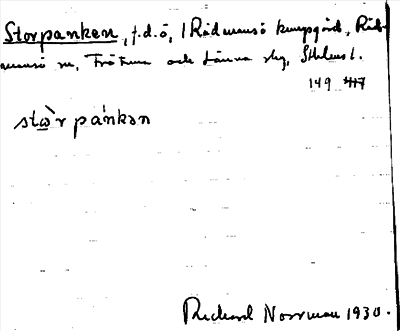 Storpanken, f.d. ö, 1 Rådmansö kungsgård, Råd-
mansö sn, Frötuna och Länna skg, Sthlms l.
149 417
stɷ̀r pánkən
Richard Norrman 1930.